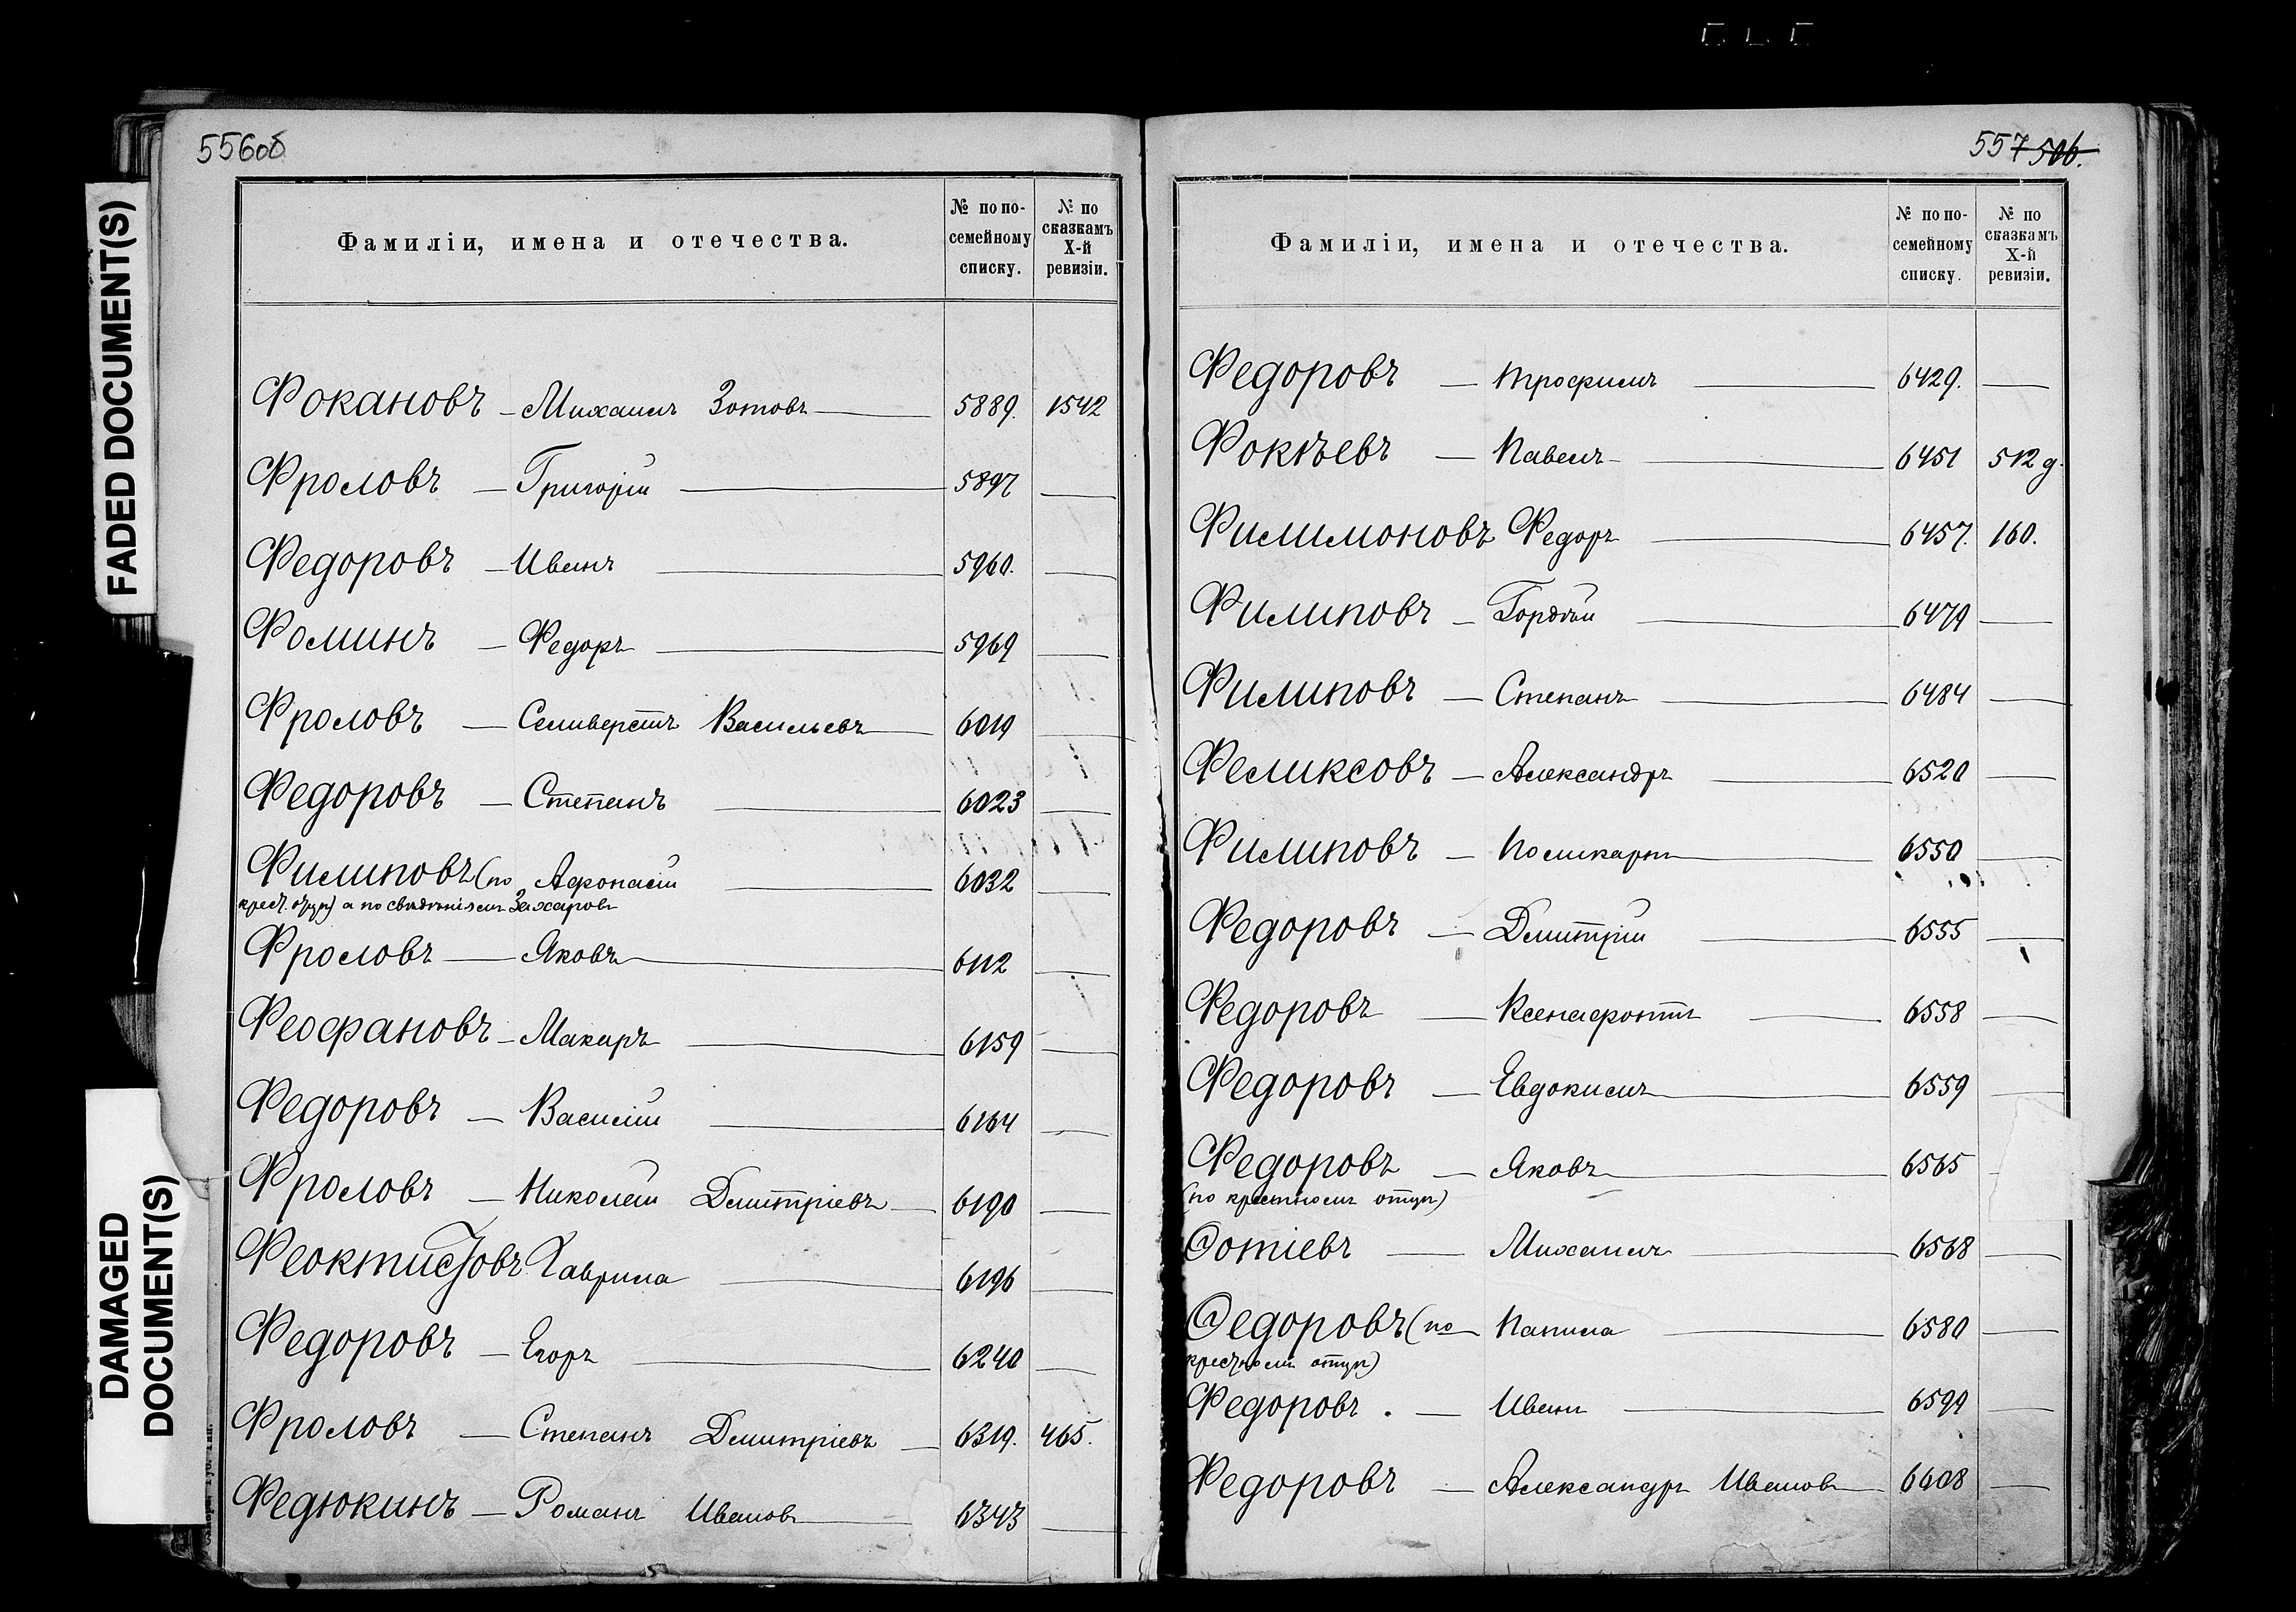 556об
FADED DOCUMENT(S)
DAMAGED
DOCUMENT(S)
Фамиліи, имена и отечества.
№ по по-
семейному
списку.
№ по
сказкамъ
X-й
ревизіи.
Фокановъ — Михаилъ Зотовъ — 5889. 1542
Фроловъ — Григорій — 5897 —
Федоровъ — Иванъ — 5960. —
Фоминъ — Федоръ — 5969 —
Фроловъ — Селиверстъ Васильевъ — 6019 —
Федоровъ — Степанъ — 6023 —
Филиповъ (по Афонасій — 6032 —
крест. отцу) а по свѣдѣніямъ Захаровъ
Фроловъ — Яковъ — 6112 —
Феофановъ — Макаръ — 6159 —
Федоровъ — Василій — 6164 —
Фроловъ — Николай Дмитріевъ — 6190 —
Феоктистовъ Гаврила — 6196 —
Федоровъ — Егоръ — 6240 —
Фроловъ — Степанъ Дмитріевъ — 6319. 465.
Федюкинъ — Романъ Иванов — 6343 —
557 506.
Фамиліи, имена и отечества.
№ по по-
семейному
списку.
№ по
сказкамъ
X-й
ревизіи.
Федоровъ — Трофимъ — 6429. —
Фокѣевъ — Павелъ — 6451 512 д.
Филимоновъ Федоръ — 6457. 160.
Филиповъ — Гордѣй — 6479 —
Филиповъ — Степанъ — 6484 —
Феликсовъ — Александръ — 6520 —
Филиповъ — Поликарпъ — 6550 —
Федоровъ — Дмитрій — 6555 —
Федоровъ — Ксенофонтъ — 6558 —
Федоровъ — Евдокимъ — 6559 —
Федоровъ — Яковъ — 6565
(по крестномъ отцу)
Фотіевъ — Михаилъ — 6568 —
Федоровъ (по Капила — 6580 —
крестномъ отцу)
Федоровъ . — Иванъ — 6599 —
Федоровъ — Александръ Иванов — 6608 —